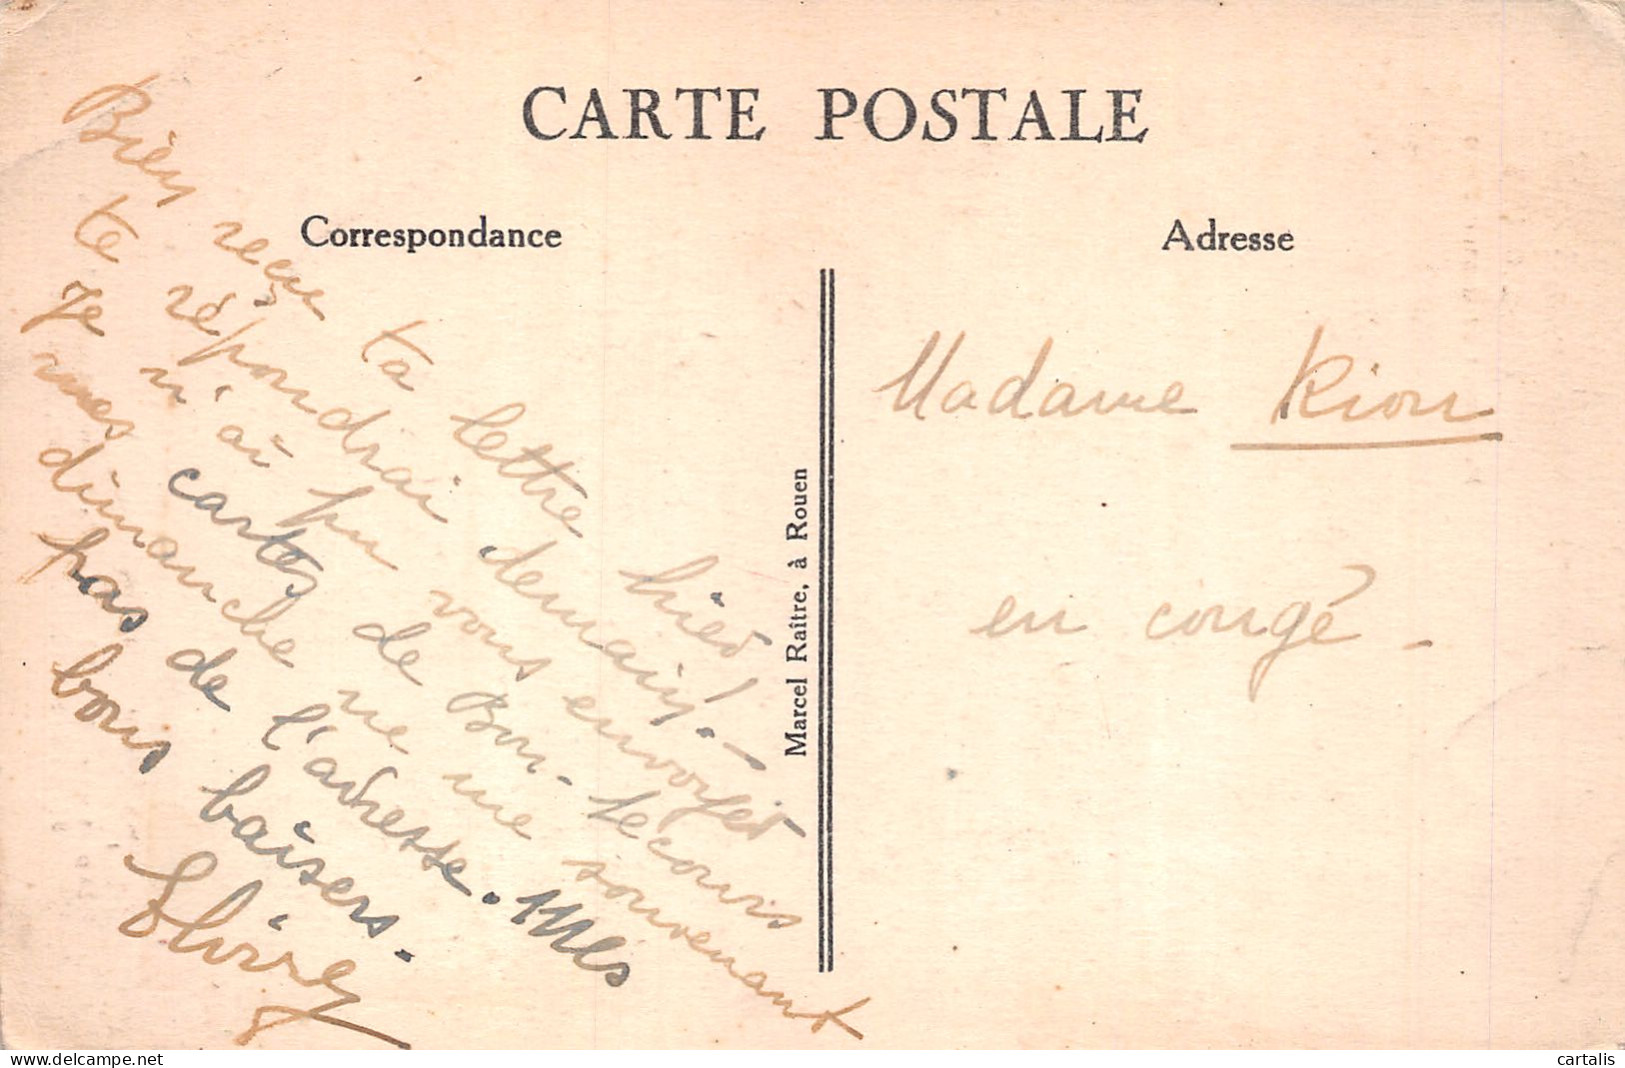 CARTE POSTALE
Correspondance
Adresse
Bien reçue ta lettre hier!
te répondrai demain! —
Je n'ai pu vous envoyer
mes cartes de Bon-Secours
dimanche ne me souvenant
pas de l'adresse. Mes
bons baisers.
Elvire
Madame Rion
en congé -
Marcel Raître, à Rouen
cartalis